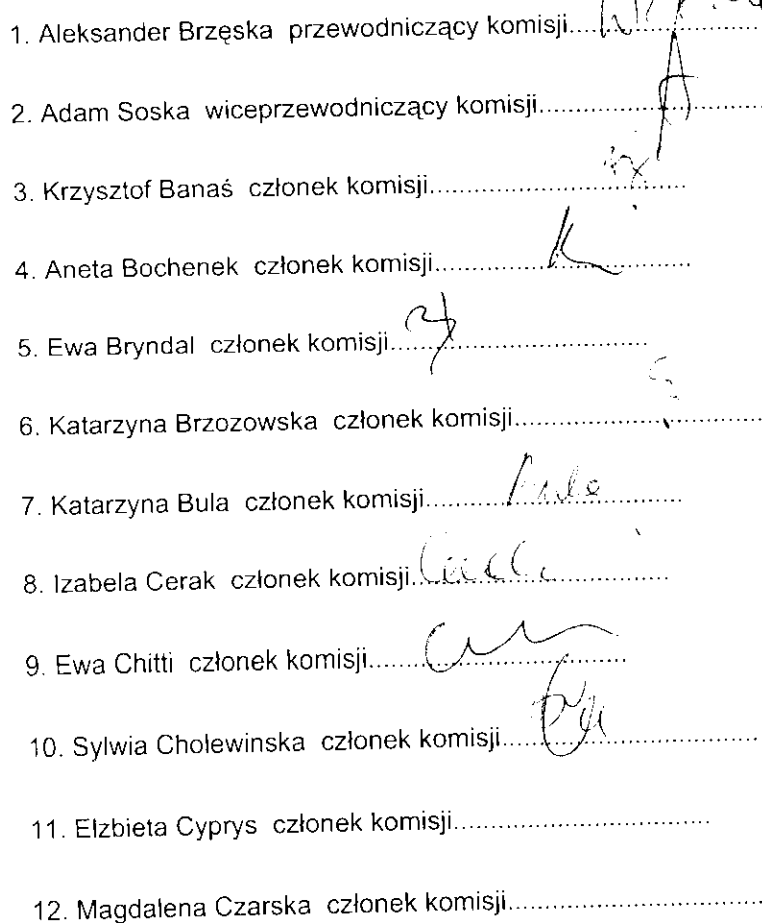 1. Aleksander Brzęska przewodniczący komisji....................
2. Adam Soska wiceprzewodniczący komisji..............................
3. Krzysztof Banaś członek komisji.................................
4. Aneta Bochenek członek komisji.................................
5. Ewa Bryndal członek komisji.................................
6. Katarzyna Brzozowska członek komisji.................................
7. Katarzyna Bula członek komisji.................................
8. Izabela Cerak członek komisji.................................
9. Ewa Chitti członek komisji.................................
10. Sylwia Cholewinska członek komisji.................................
11. Elzbieta Cyprys członek komisji.................................
12. Magdalena Czarska członek komisji.................................